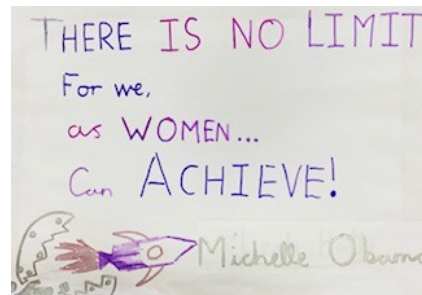 THERE IS NO LIMIT
For we,
as WOMEN...
Can ACHIEVE!
Michelle Obama